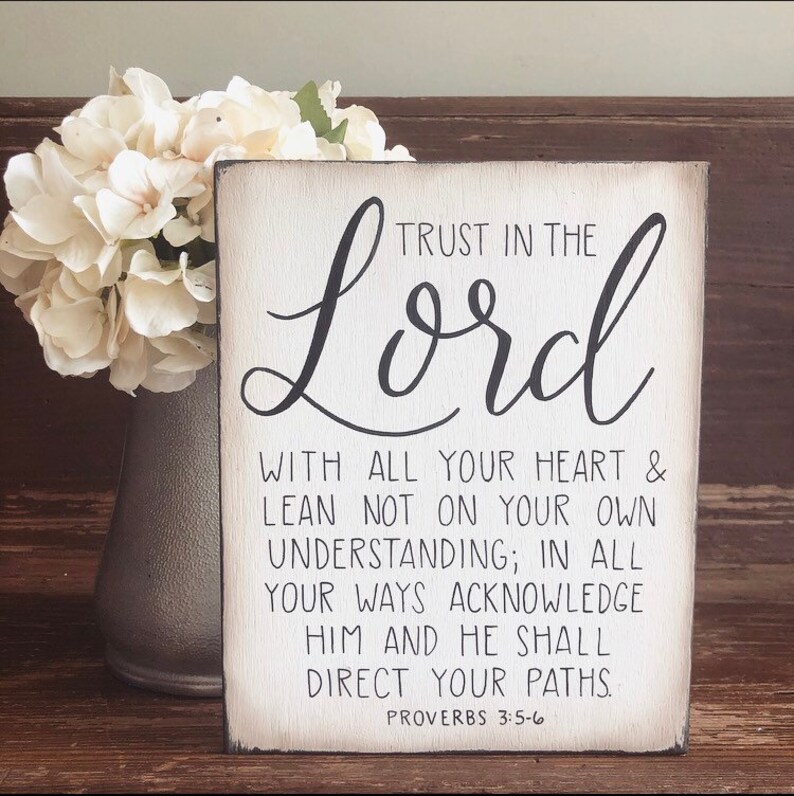 TRUST IN THE
Lord
WITH ALL YOUR HEART &
LEAN NOT ON YOUR OWN
UNDERSTANDING; IN ALL
YOUR WAYS ACKNOWLEDGE
HIM AND HE SHALL
DIRECT YOUR PATHS.
PROVERBS 3:5-6